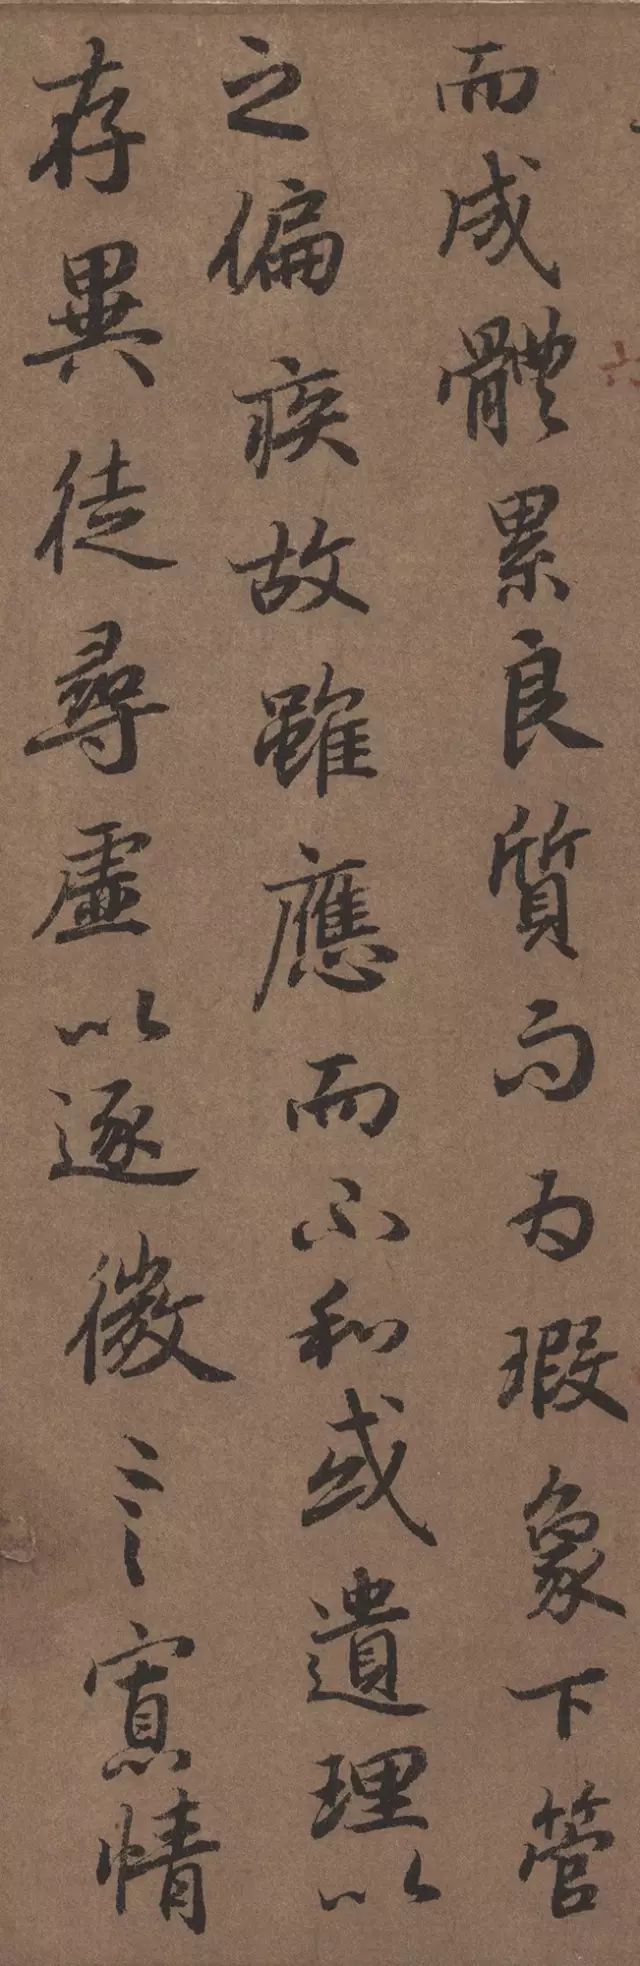 而成體累良質而為瑕象下管
之偏疾故雖應而不和或遺理以
存異徒尋虛以逐微言寡情